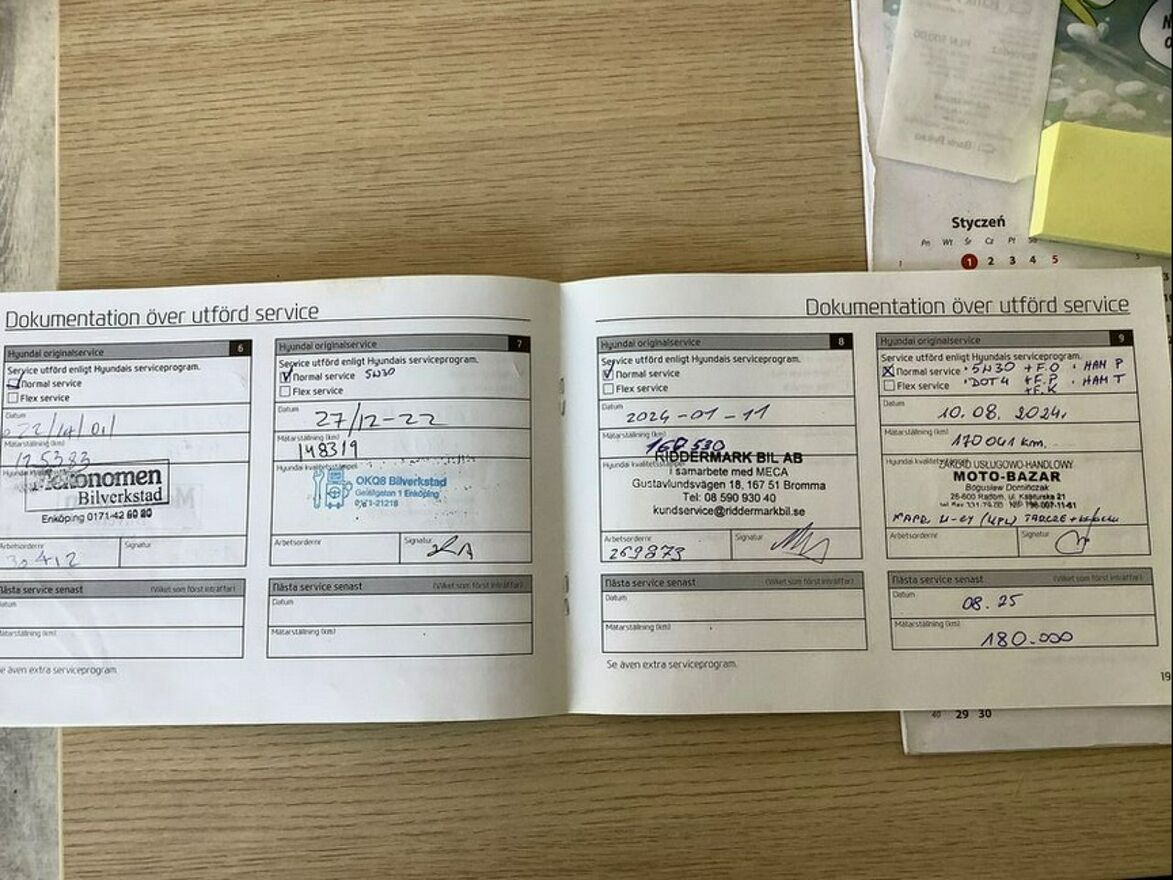 Styczeń
Pn Wt Śr Cz Pt
1 1 2 3 4 5
Dokumentation över utförd service
Hyundai originalservice 6
Service utförd enligt Hyundais serviceprogram.
Normal service
Flex service
Datum
Mätarställning (km)
125383
Hyundai
onomen
Bilverkstad
Enköping 0171-42 60 20
Arbetsordernr
Signatur
Nästa service senast (Vilket som först inträffar)
Datum
Mätarställning (km)
Se även extra serviceprogram.
Hyundai originalservice 7
Service utförd enligt Hyundais serviceprogram.
Normal service 5W30
Flex service
Datum
27/12-22
Mätarställning (km)
148319
Hyundai kvalitetsstämpel
OKQ8 Bilverkstad
Enköping
Arbetsordernr
Signatur
Nästa service senast (Vilket som först inträffar)
Datum
Mätarställning (km)
Dokumentation över utförd service
Hyundai originalservice 8
Service utförd enligt Hyundais serviceprogram.
Normal service
Flex service
Datum
2024-01-11
Mätarställning (km)
Hyundai kvalitetsstämpel
RIDDERMARK BIL AB
i samarbete med MECA
Gustavlundsvägen 18, 167 51 Bromma
Tel: 08 590 930 40
kundservice@riddermarkbil.se
Arbetsordernr
269873
Signatur
Nästa service senast (Vilket som först inträffar)
Datum
Mätarställning (km)
Se även extra serviceprogram.
Hyundai originalservice 9
Service utförd enligt Hyundais serviceprogram.
Normal service · 5W30 +F.O · HAM P
Flex service · DOT4 +F.P · HAM T
+F.K
Datum
10.08. 2024r
Mätarställning (km)
170041 km.
Hyundai kvalitetsstämpel
ZAKŁAD USŁUGOWO-HANDLOWY
MOTO-BAZAR
Bogusław Domińczak
26-600 Radom, ul.
Arbetsordernr
Signatur
Nästa service senast (Vilket som först inträffar)
Datum
08.25
Mätarställning (km)
180.000
19
40 29 30